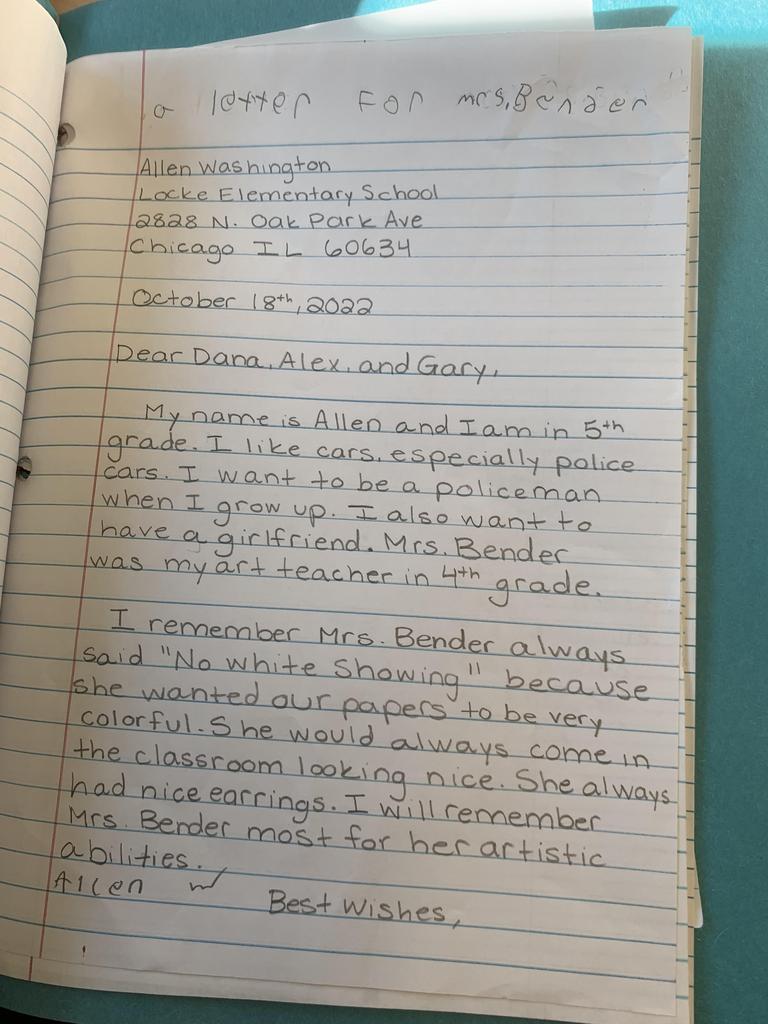 a letter For mrs. Bender
Allen Washington
Locke Elementary School
2828 N. Oak Park Ave
Chicago IL 60634
October 18th, 2022
Dear Dana, Alex, and Gary,
My name is Allen and I am in 5th
grade. I like cars, especially police
cars. I want to be a policeman
when I grow up. I also want to
have a girlfriend. Mrs. Bender
was my art teacher in 4th grade.
I remember Mrs. Bender always
said "No white showing" because
she wanted our papers to be very
colorful. She would always come in
the classroom looking nice. She always
had nice earrings. I will remember
Mrs. Bender most for her artistic
abilities.
Allen w
Best Wishes,